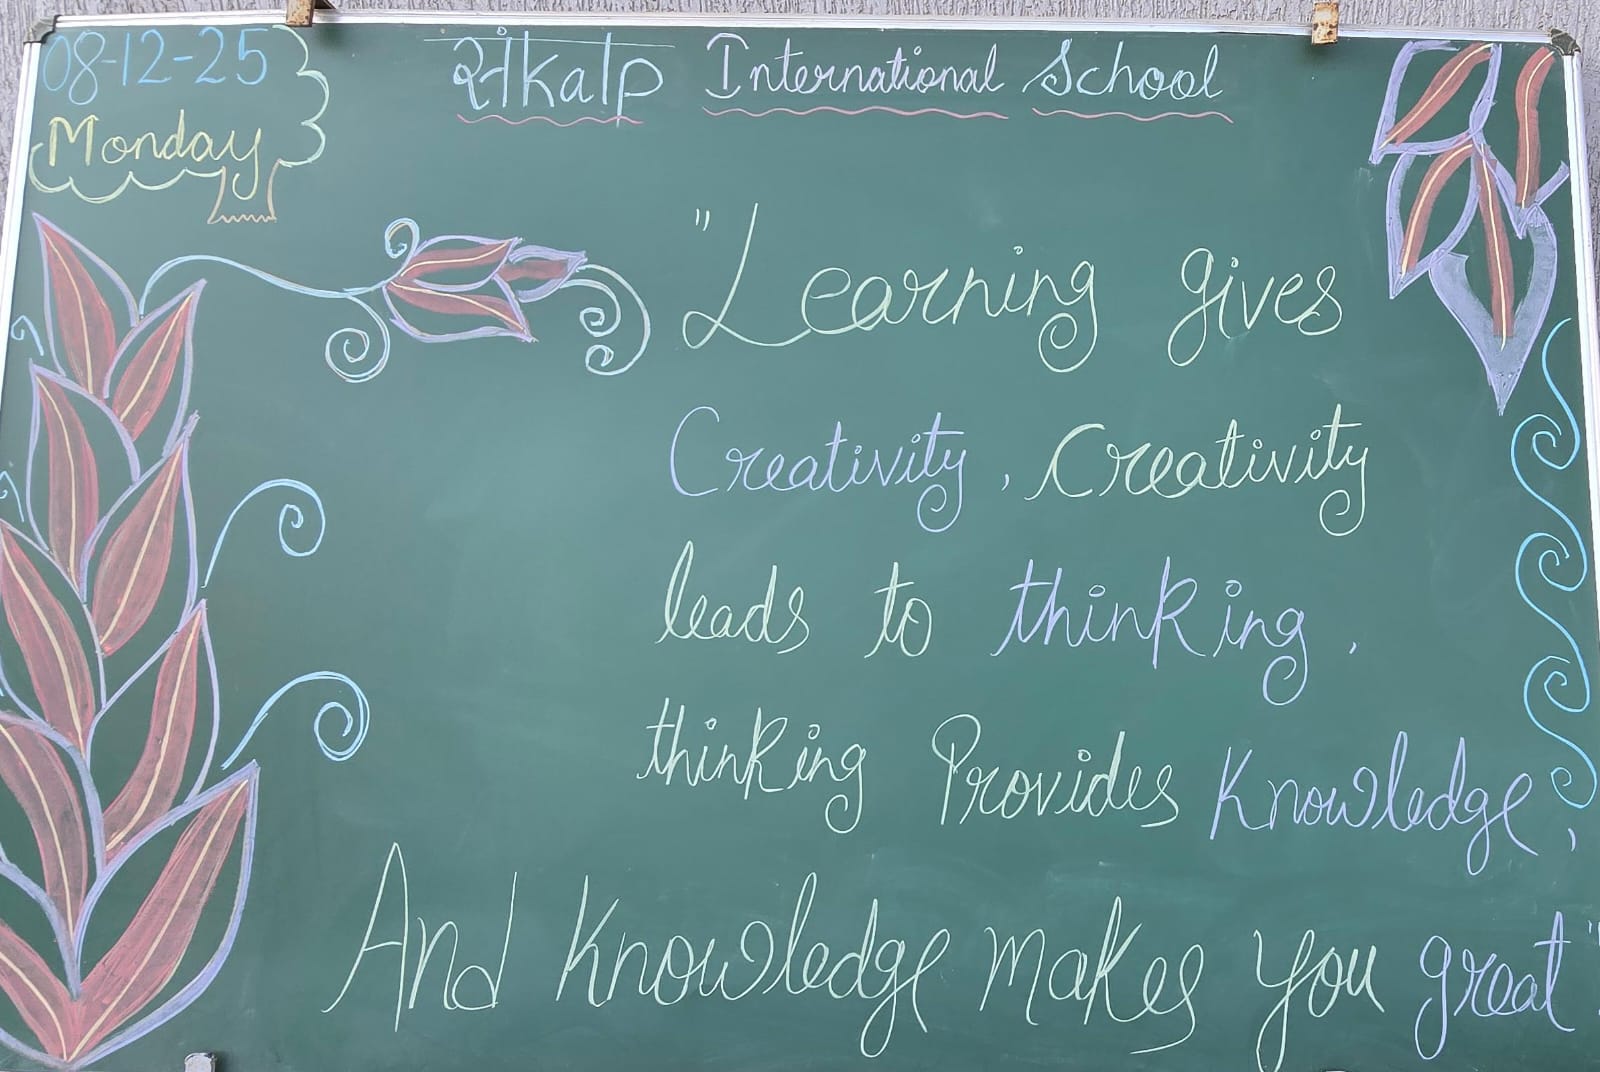 08-12-25
Monday
संkalp International School
"Learning gives
Creativity, Creativity
leads to thinking,
thinking Provides Knowledge,
And Knowledge makes you great"